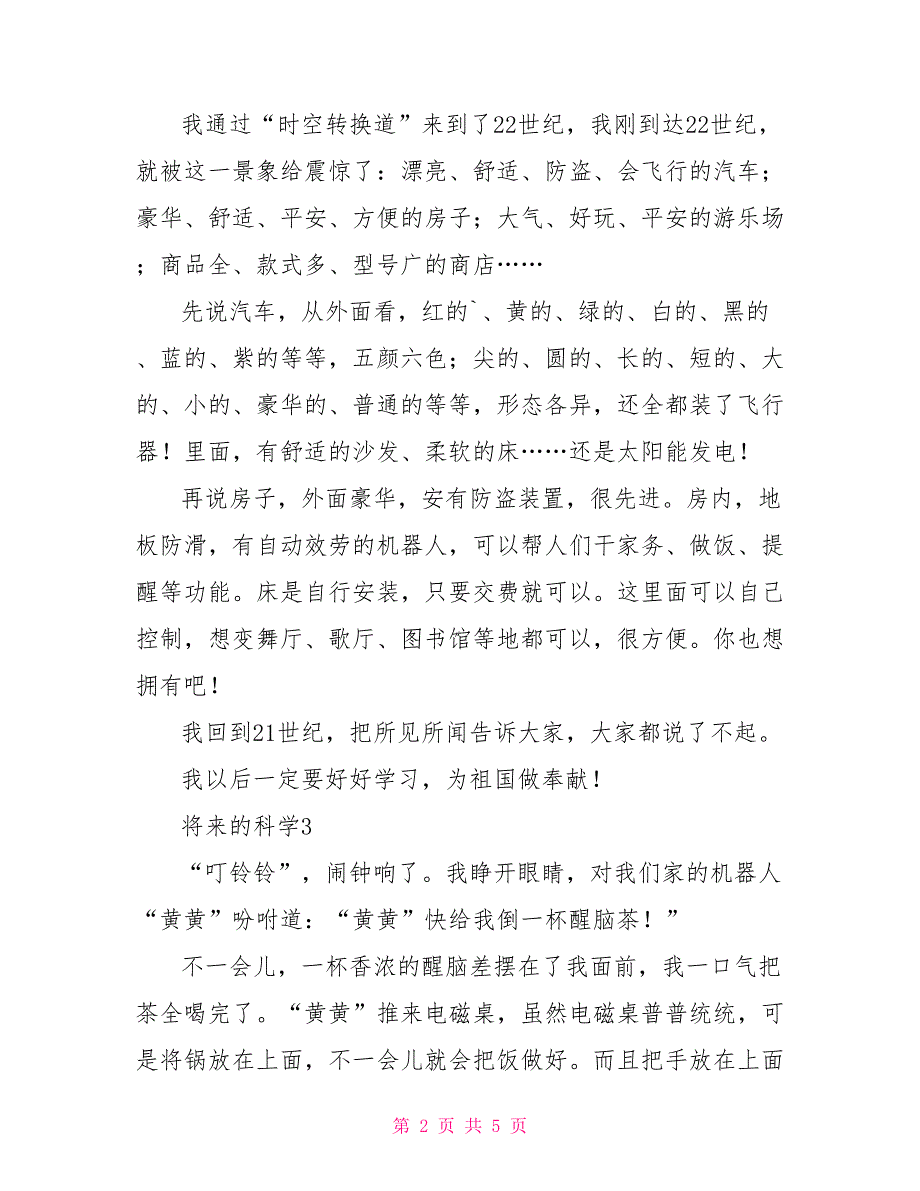 我通过“时空转换道”来到了22世纪，我刚到达22世纪，
就被这一景象给震惊了：漂亮、舒适、防盗、会飞行的汽车；
豪华、舒适、平安、方便的房子；大气、好玩、平安的游乐场
；商品全、款式多、型号广的商店……
先说汽车，从外面看，红的`、黄的、绿的、白的、黑的
、蓝的、紫的等等，五颜六色；尖的、圆的、长的、短的、大
的、小的、豪华的、普通的等等，形态各异，还全都装了飞行
器！里面，有舒适的沙发、柔软的床……还是太阳能发电！
再说房子，外面豪华，安有防盗装置，很先进。房内，地
板防滑，有自动效劳的机器人，可以帮人们干家务、做饭、提
醒等功能。床是自行安装，只要交费就可以。这里面可以自己
控制，想变舞厅、歌厅、图书馆等地都可以，很方便。你也想
拥有吧！
我回到21世纪，把所见所闻告诉大家，大家都说了不起。
我以后一定要好好学习，为祖国做奉献！
将来的科学3
“叮铃铃”，闹钟响了。我睁开眼睛，对我们家的机器人
“黄黄”吩咐道：“黄黄”快给我倒一杯醒脑茶！”
不一会儿，一杯香浓的醒脑差摆在了我面前，我一口气把
茶全喝完了。“黄黄”推来电磁桌，虽然电磁桌普普统统，可
是将锅放在上面，不一会儿就会把饭做好。而且把手放在上面
第 2 页 共 5 页